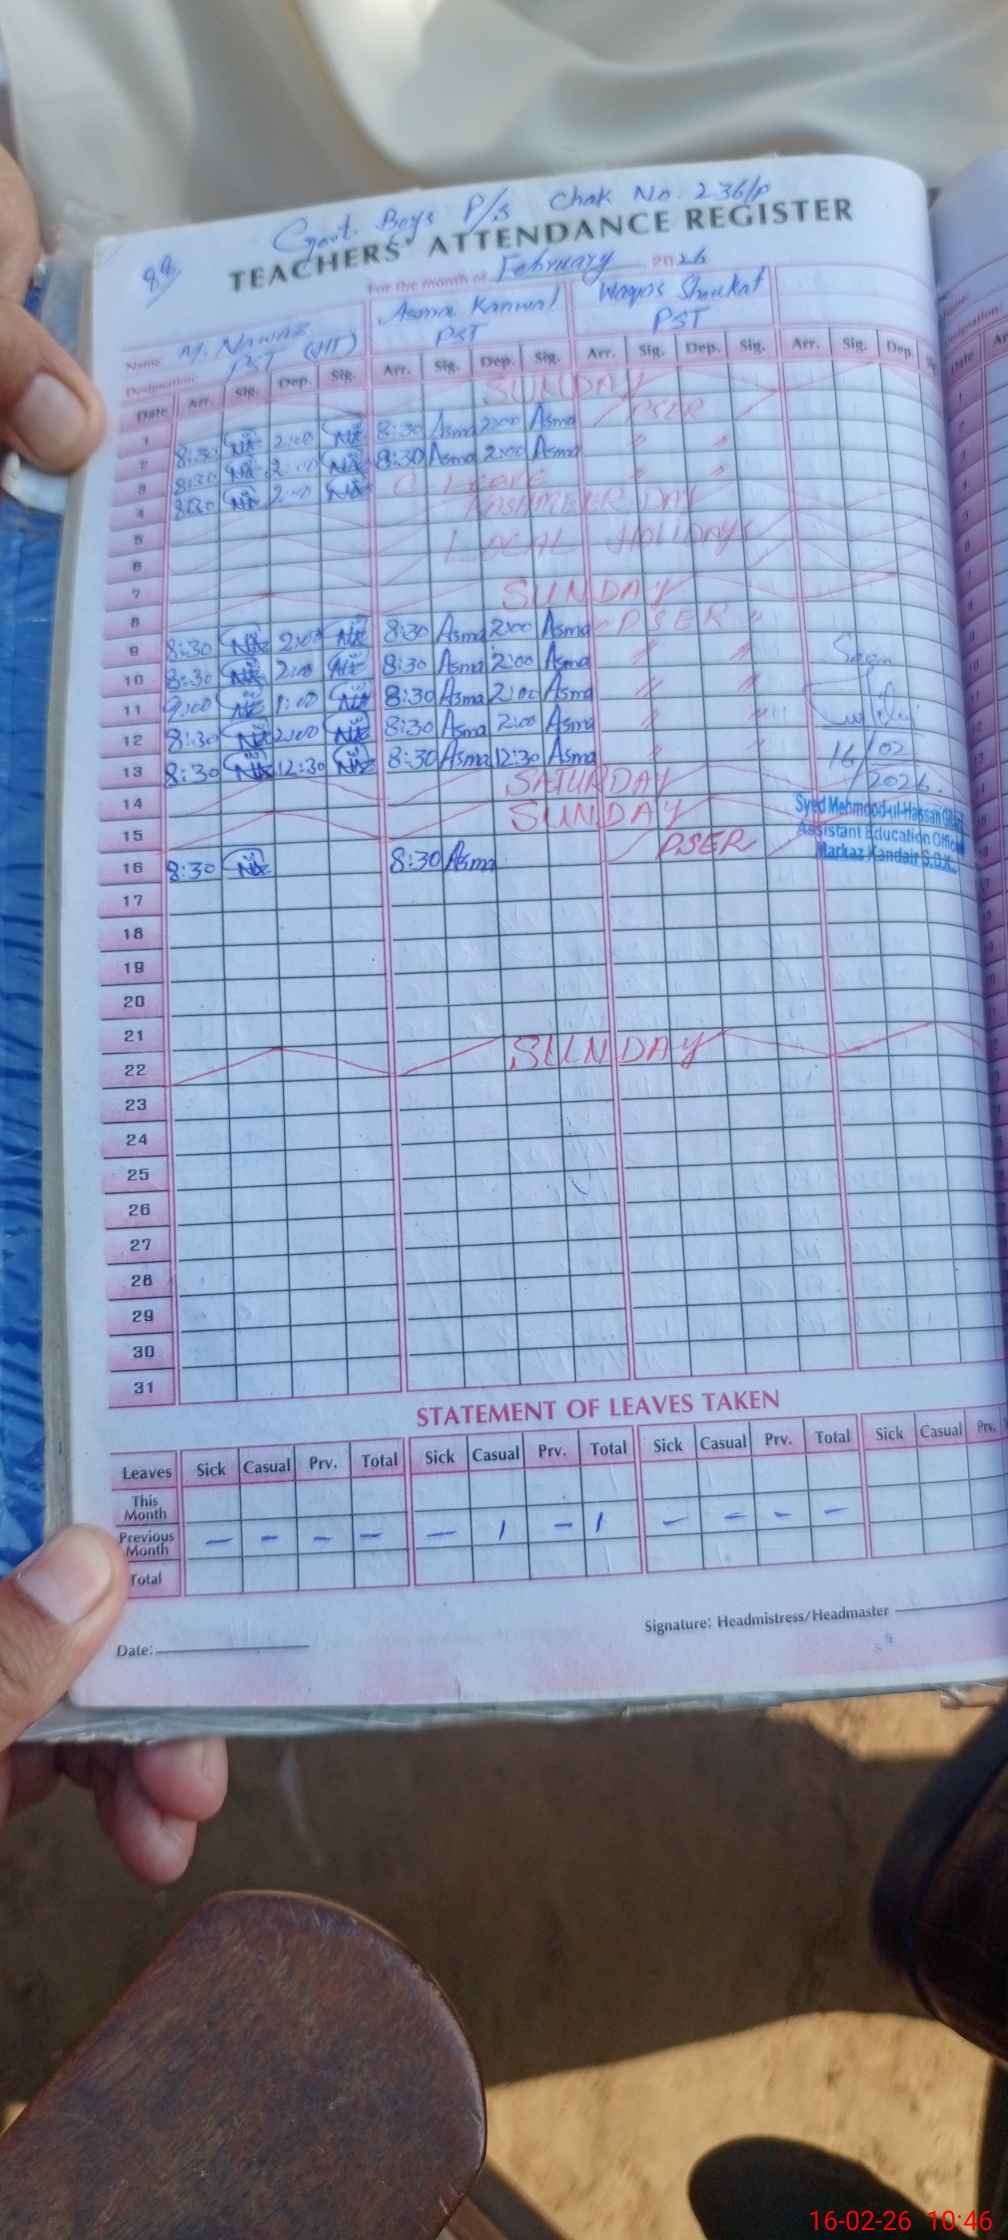 88
Govt. Boys P/s Chak No. 236/P
TEACHERS' ATTENDANCE REGISTER
For the month of February 2026
Name: M. Nawaz Asma Kanwal Waqas Shoukat
Designation: PST (HT) PST PST
Date Arr. Sig. Dep. Sig. Arr. Sig. Dep. Sig. Arr. Sig. Dep. Sig. Arr. Sig. Dep.
1 SUNDAY
2 8:30 2:00 8:30 Asma 2:00 Asma PSER
3 8:30 2:00 8:30 Asma 2:00 Asma " "
4 8:30 2:00 C Leave " "
5 KASHMEER DAY
6 LOCAL HOLIDAYS
7
8 SUNDAY
9 8:30 2:00 8:30 Asma 2:00 Asma PSER "
10 8:30 2:00 8:30 Asma 2:00 Asma " "
11 9:00 1:00 8:30 Asma 2:00 Asma " "
12 8:30 2:00 8:30 Asma 2:00 Asma " "
13 8:30 12:30 8:30 Asma 12:30 Asma " "
14 SATURDAY
15 SUNDAY
16 8:30 8:30 Asma PSER
Seen
16/02/2026.
Syed Mehmood-ul-Hassan
Assistant Education Officer
Markaz Kandair S.D.K.
17
18
19
20
21
22 SUNDAY
23
24
25
26
27
28
29
30
31
STATEMENT OF LEAVES TAKEN
Leaves Sick Casual Prv. Total Sick Casual Prv. Total Sick Casual Prv. Total Sick Casual Prv.
This Month
Previous Month – – – – – 1 – 1 – – – –
Total
Date:
Signature: Headmistress/Headmaster
16-02-26 10:46